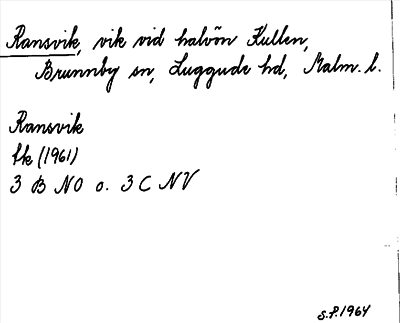 Ransvik, vik vid halvön Kullen,
Brunnby sn, Luggude hd, Malm. l.
Ransvik
Ek (1961)
3 B NO o. 3 C NV
S.F. 1964